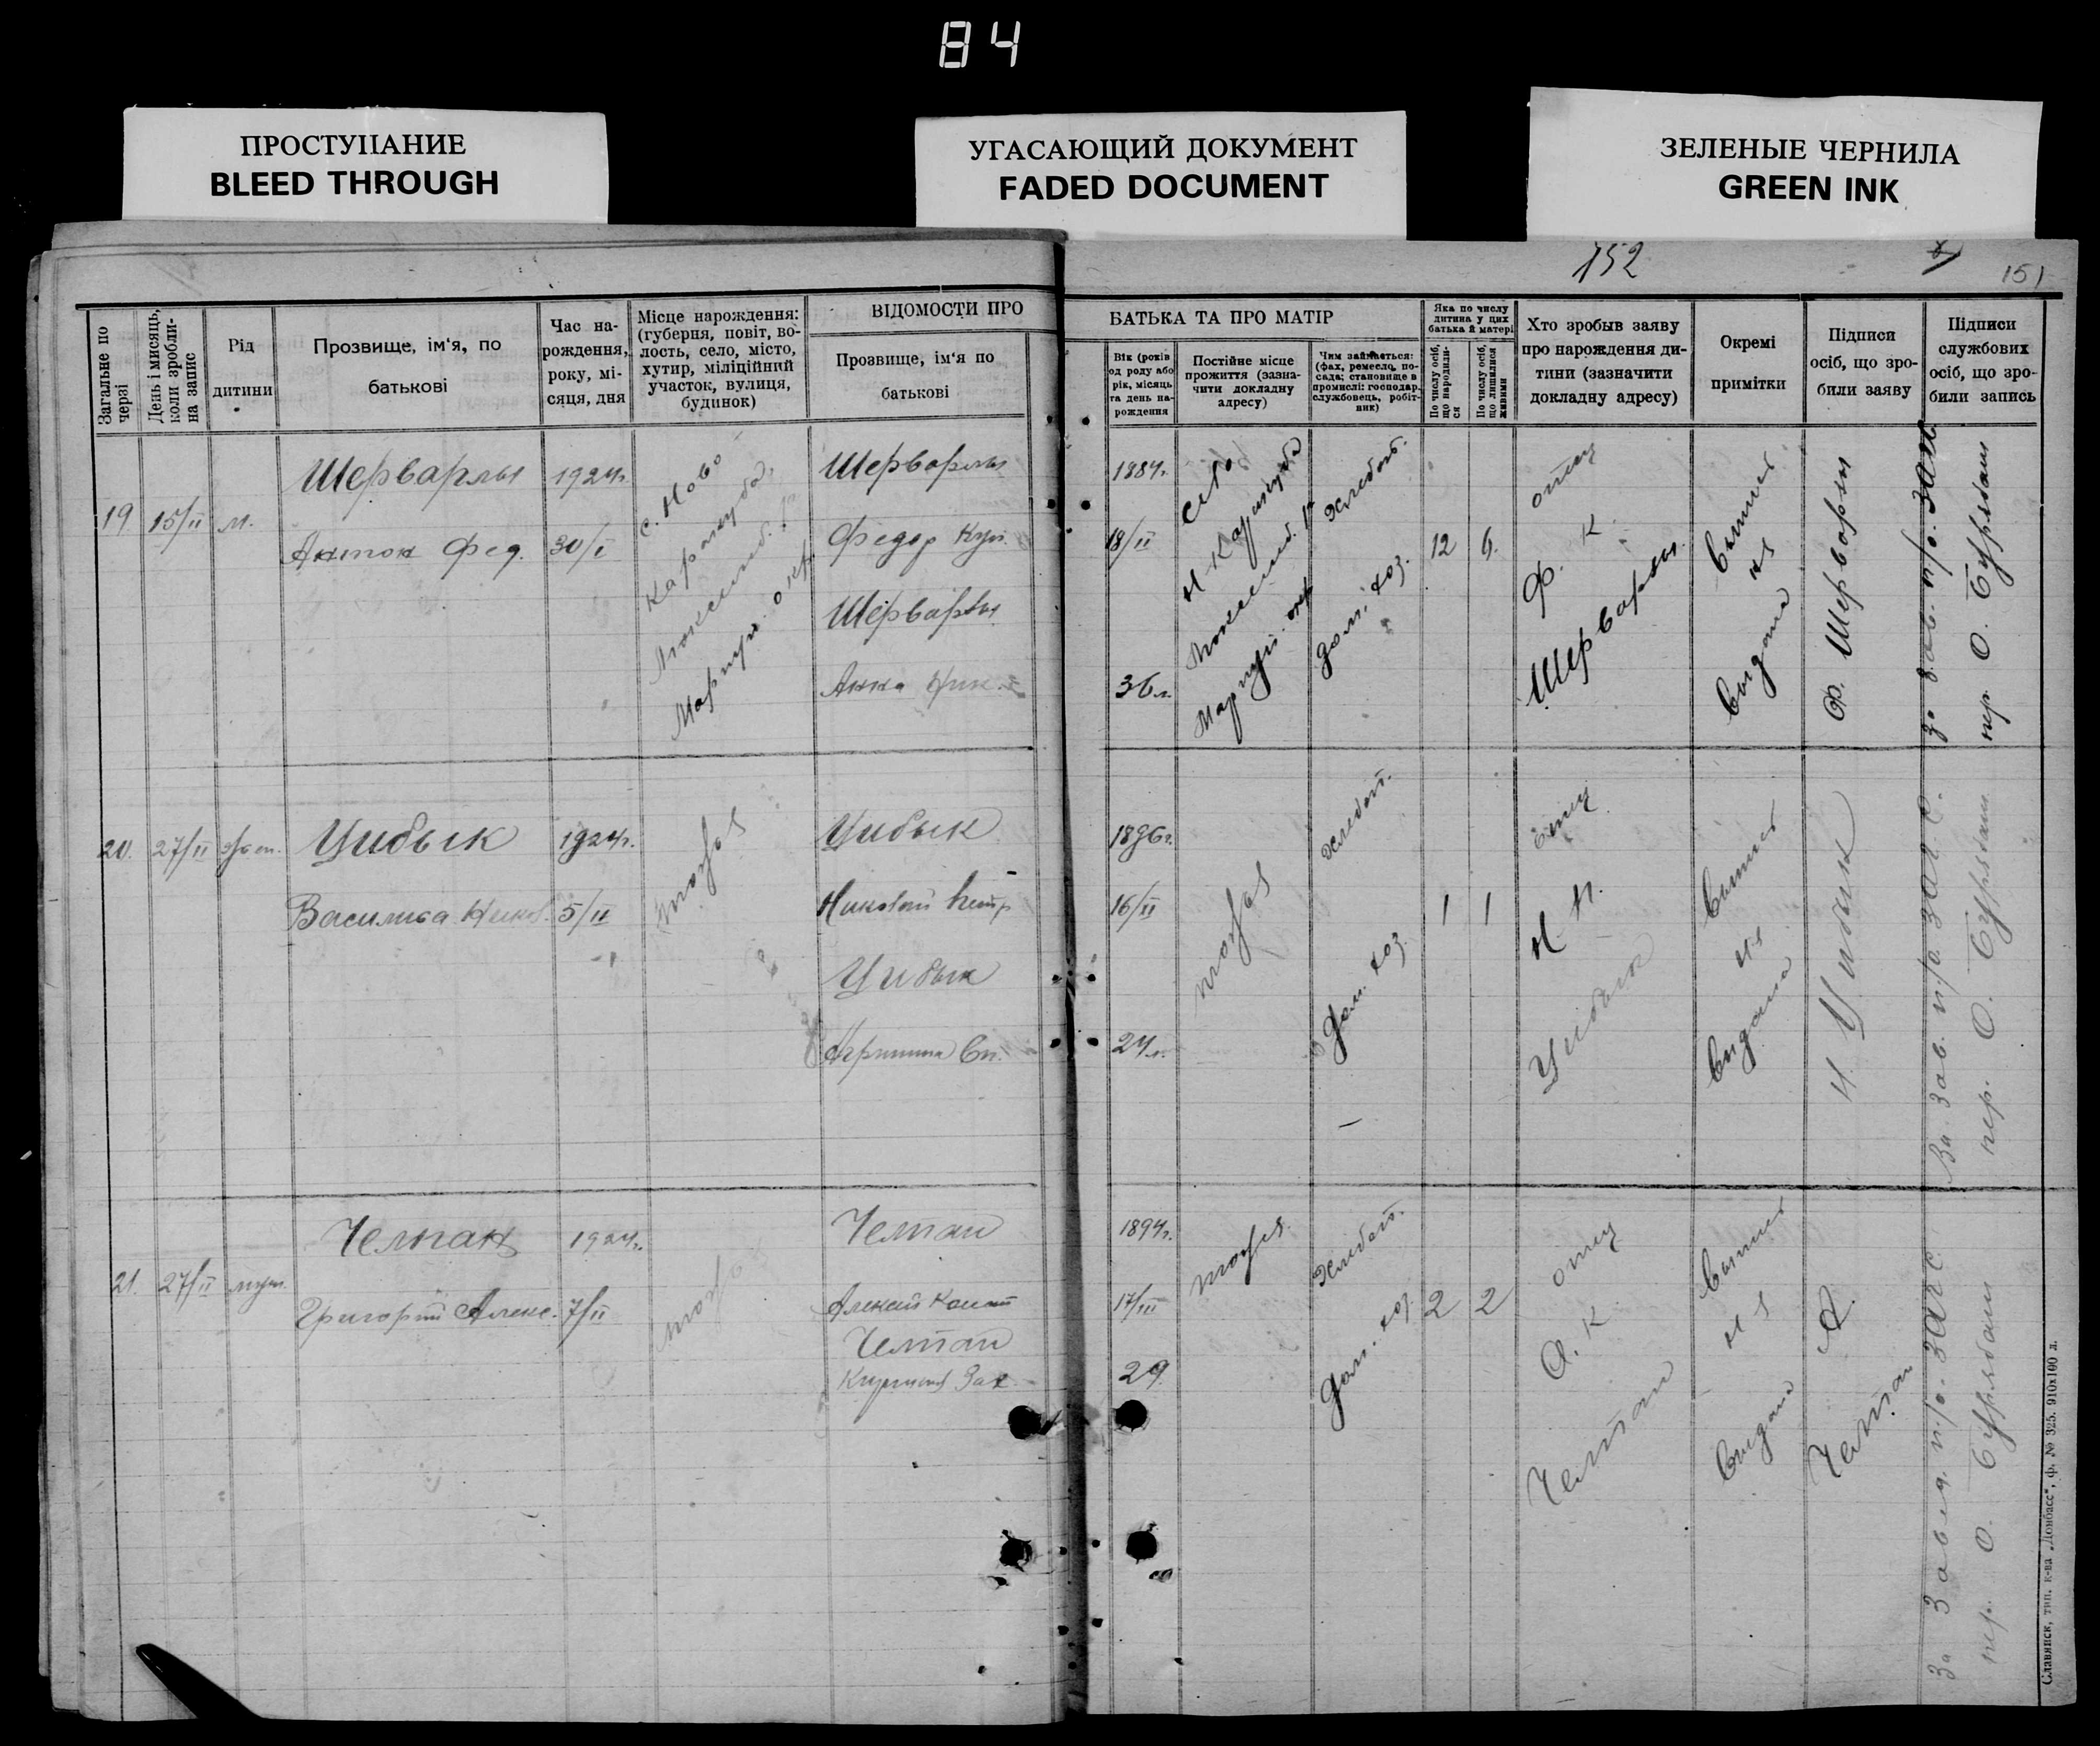 84
ПРОСТУПАНИЕ
BLEED THROUGH
УГАСАЮЩИЙ ДОКУМЕНТ
FADED DOCUMENT
ЗЕЛЕНЫЕ ЧЕРНИЛА
GREEN INK
152
151
Загальне по черзі
День і мисяць, коли зробили- на запис
Рід
дитини
Прозвище, ім'я, по
батькові
Час на-
рождення,
року, мі-
сяця, дня
Місце нарождення:
(губерня, повіт, во-
лость, село, місто,
хутир, міліційний
участок, вулиця,
будинок)
ВІДОМОСТИ ПРО
Прозвище, ім'я по
батькові
БАТЬКА ТА ПРО МАТІР
Вік (років
од роду або
рік, місяць
та день на-
рождення
Постійне місце
прожиття (зазна-
чити докладну
адресу)
Чим займається:
(фах, ремесло, по-
сада; становище в
промислі: господар,
службовець, робіт-
ник)
Яка по числу
дитина у цих
батька й матері
По числу осіб,
що народили-
ся
По числу осіб,
що лишилися
живими
Хто зробыв заяву
про нарождення ди-
тини (зазначити
докладну адресу)
Окремі
примітки
Підписи
осіб, що зро-
били заяву
Підписи
службових
осіб, що зро-
били запись
19
15/II
м.
Шерварлы
Антон Фед.
1924г.
30/I
с. Ново
Каракуба,
Мариуп. окр.
Шерварлы
Федор Куз.
Шерварлы
Анна Ник.
1884г.
18/II
36л.
село
Н Каракуба
Мариуп. окр
Хлебоб.
Дом. хоз.
12
6.
отец
Ф. К.
Шерварлы
Выпись
Выдана
Ф. Шерварлы
За Зав. п/о. ЗАГС
20.
27/II
жен.
Цибык
Василиса Никол.
1924г.
5/II
тоже
Цибык
Николай Петр
Цибык
1896г.
16/II
24л.
тоже
Хлебоб.
Дом. хоз.
1
1
отец
Н П.
Цибык
Выпись
Выдана
Н. Цибык
За Зав. п/о ЗАГС.
21.
27/II
муж.
Челпан
Григорий Алекс.
1924г.
7/II
тоже
Челпан
Алексей
Челпан
1894г.
17/III
29
тоже
Хлебоб.
Дом. хоз.
2
2
отец
А. К
Челпан
Выпись
Выдана
А. Челпан
За Завед. п/о. ЗАГС
Славянск, тип. к-ва „Донбасс", ф. № 325. 910х100 л.